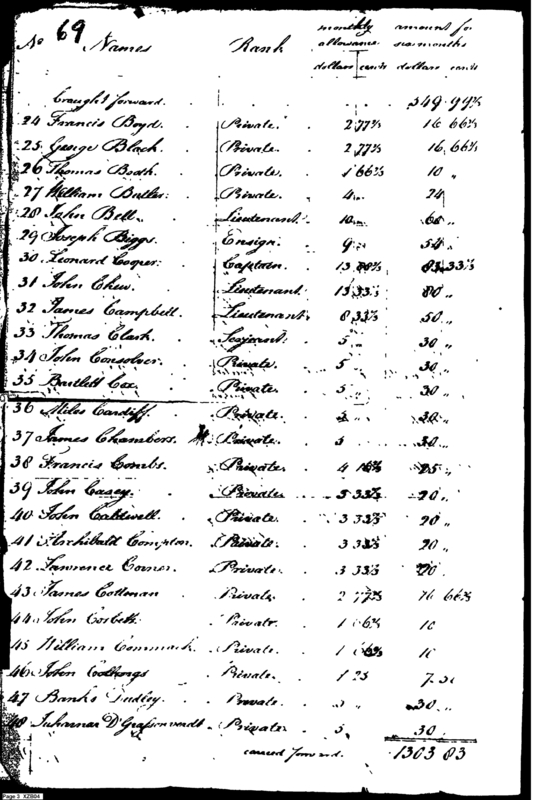 69
monthly amount for
No Names Rank allowance six months
dollars cents dollars cents
brought forward. 549 99⅔
24 Francis Boyd. Private. 2 77⅔ 16 66⅔
25 George Black. Private. 2 77⅔ 16 66⅔
26 Thomas Booth. Private. 1 66⅔ 10 "
27 William Butler. Private. 4 " 24
28 John Bell. Lieutenant. 10 " 60 "
29 Joseph Biggs. Ensign. 9 " 54 "
30 Leonard Cooper. Captain. 13 88⅔ 83 33⅓
31 John Chew. Lieutenant. 13 33⅓ 80 "
32 James Campbell. Lieutenant. 8 33⅓ 50 "
33 Thomas Clark. Serjeant. 5 " 30 "
34 John Consolver. Private. 5 30 "
35 Bartlett Cox. Private. 5 " 30 "
36 Miles Cardiff. Private. 5 " 30 "
37 James Chambers. Private. 5 30 "
38 Francis Combs. Private. 4 16⅔ 25 "
39 John Casey. Private. 3 33⅓ 20 "
40 John Caldwell. Private. 3 33⅓ 20 "
41 Archibald Compton. Private. 3 33⅓ 20 "
42 Lawrence Corner. Private. 3 33⅓ 20
43 James Coleman Private. 2 77⅔ 16 66⅔
44 John Corbett. Private. 1 66⅔ 10
45 William Commack. Private. 1 66⅔ 10
46 John Collings Private. 1 25 7 50
47 Banks Dudley. Private. 5 " 30 "
48 D'Graffenreidt Private. 5 30
carried forward. 1303 83
Page 3 XZB04